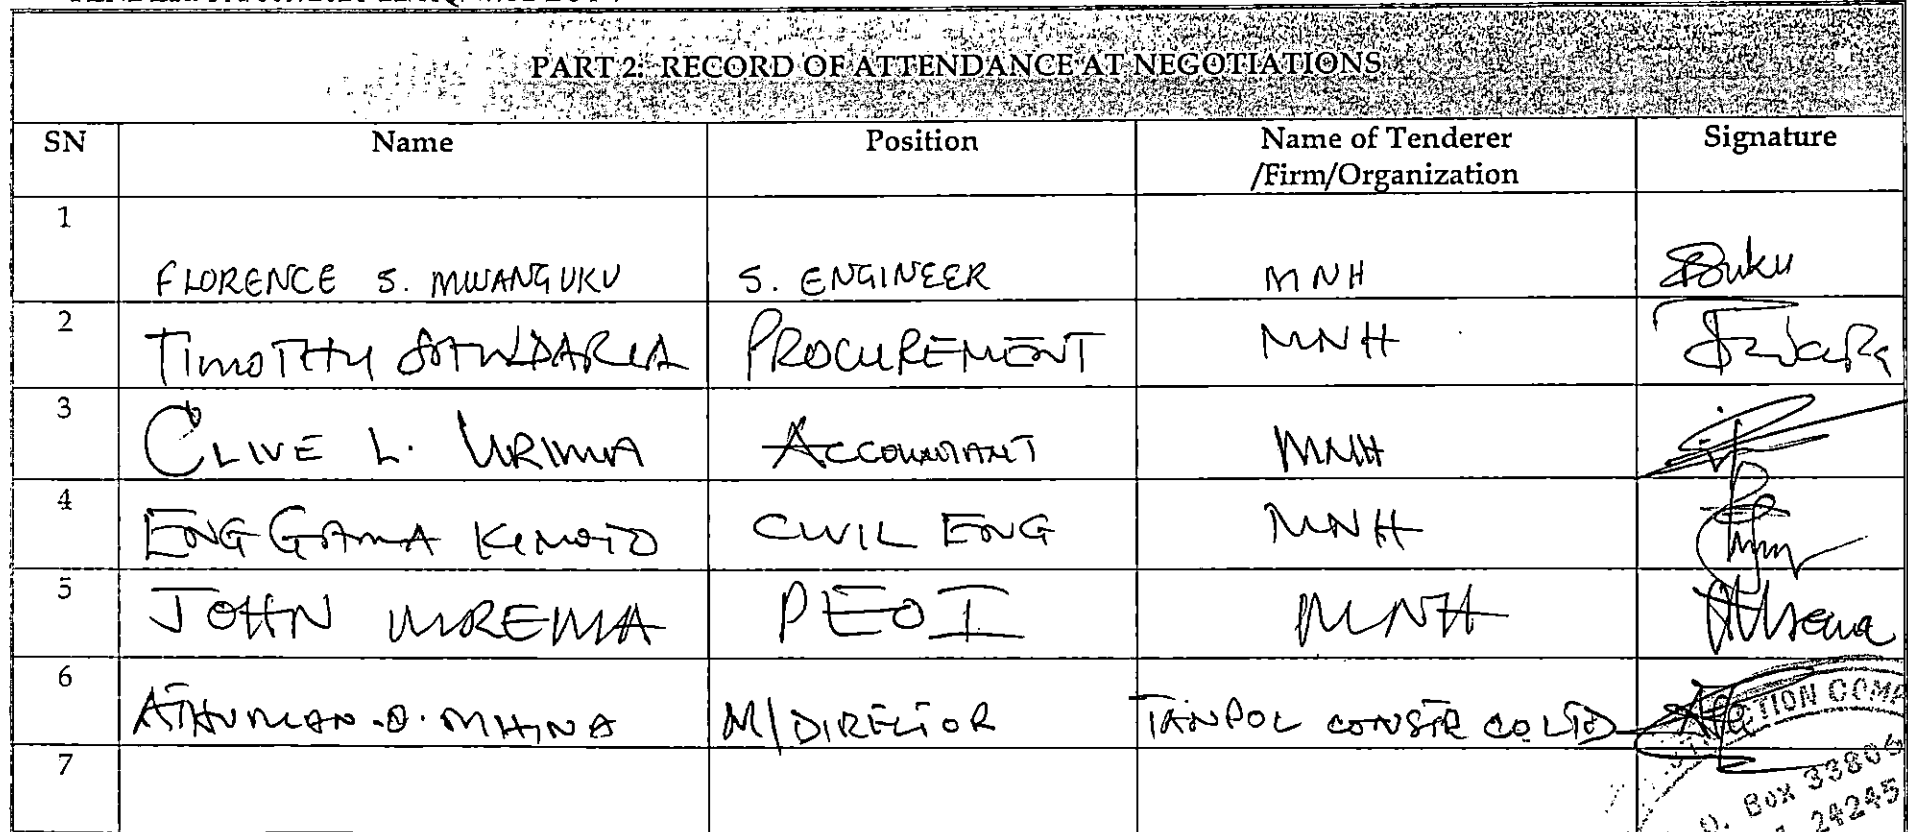 PART 2: RECORD OF ATTENDANCE AT NEGOTIATIONS
SN Name Position Name of Tenderer /Firm/Organization Signature
1 FLORENCE S. MWANGUKU S. ENGINEER MNH
2 TIMOTHY PROCUREMENT MNH
3 CLIVE L. URIMA ACCOUNTANT MNH
4 ENG GAMA CIVIL ENG MNH
5 JOHN MREMA PEO I MNH
6 ATHUMAN O. MHINA M/DIRECTOR TANPOL CONSTR CO LTD
7
Box 33806
24245